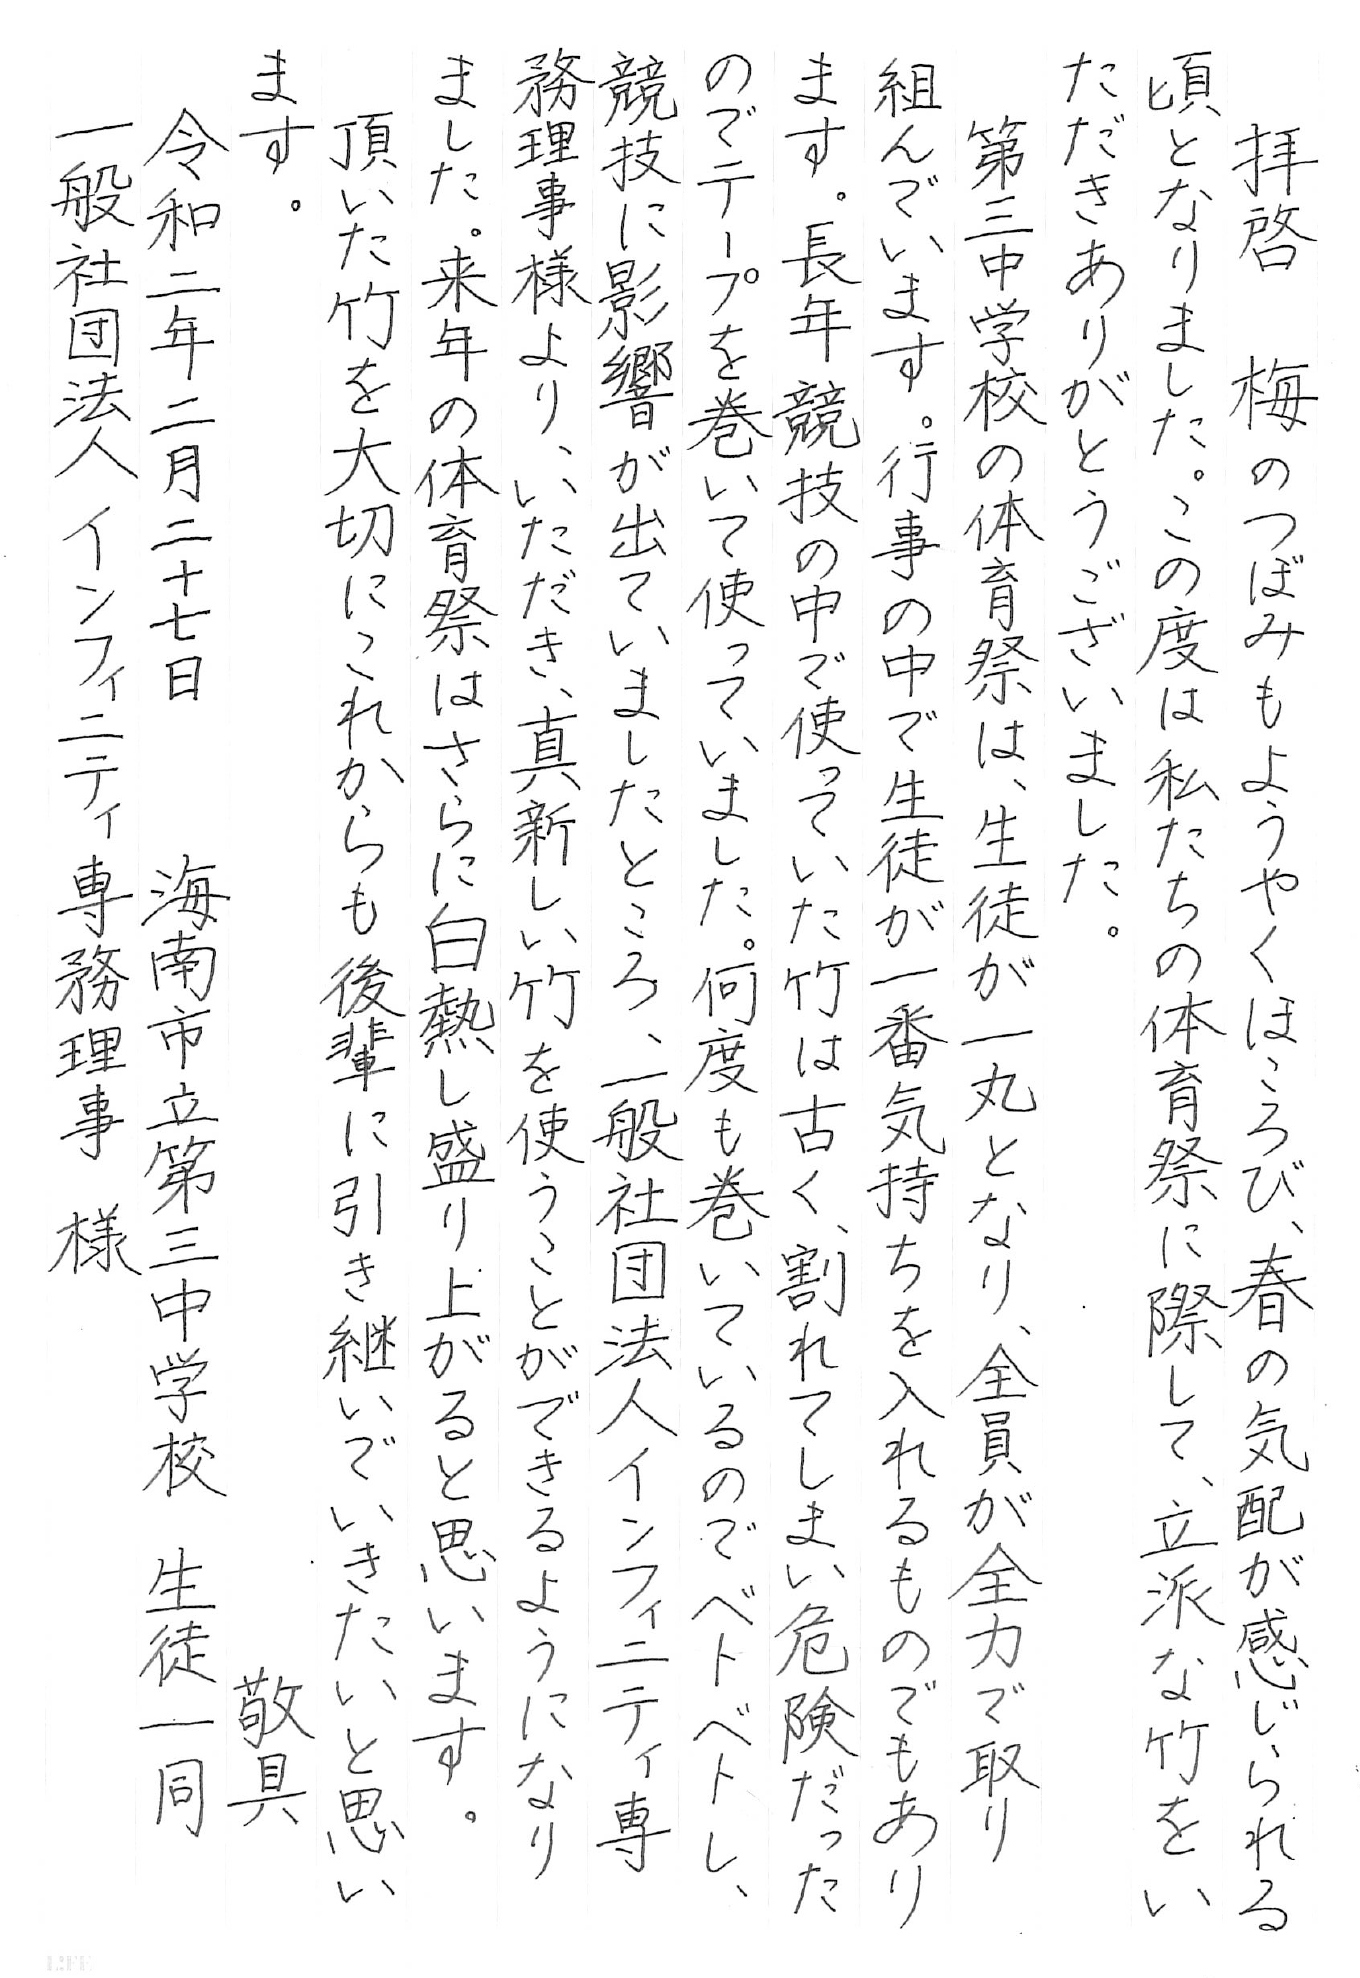 拝啓　梅のつぼみもようやくほころび、春の気配が感じられる
頃となりました。この度は私たちの体育祭に際して、立派な竹をい
ただきありがとうございました。
第三中学校の体育祭は、生徒が一丸となり、全員が全力で取り
組んでいます。行事の中で生徒が一番気持ちを入れるものでもあり
ます。長年競技の中で使っていた竹は古く、割れてしまい危険だった
のでテープを巻いて使っていました。何度も巻いているのでベトベトし、
競技に影響が出ていましたところ、一般社団法人インフィニティ専
務理事様より、いただき、真新しい竹を使うことができるようになり
ました。来年の体育祭はさらに白熱し盛り上がると思います。
頂いた竹を大切にこれからも後輩に引き継いでいきたいと思い
ます。
敬具
令和二年二月二十七日　海南市立第三中学校　生徒一同
一般社団法人 インフィニティ 専務理事 様
LIFE